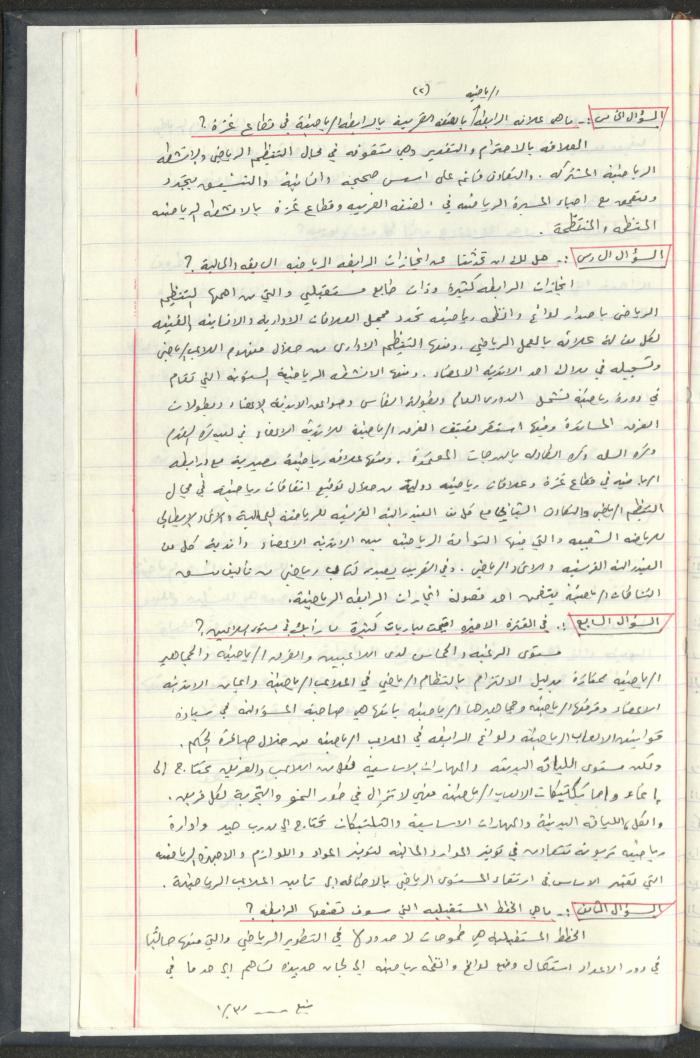 (٢)
الرياضية
السؤال الخامس :- ما هي علاقة الرابطة بالضفة الغربية بالرابطة الرياضية في قطاع غزة ؟
العلاقة بالاحترام والتقدير وهي متفوقة في مجال التنظيم الرياضي والانشطة
الرياضية المشتركة . والتعاون قائم على اسس صحيحة والتنسيق يتجدد
ويتعمق مع احياء المسيرة الرياضية في الضفة الغربية وقطاع غزة بالانشطة الرياضية
المنظمة والمنتظمة .
السؤال السادس :- هل لك ان تحدثنا عن انجازات الرابطة الرياضية السابقة والحالية ؟
انجازات الرابطة كثيرة وذات طابع مستقبلي والتي من اهمها التنظيم
الرياضي باصدار لوائح وانظمة رياضية تحدد مجمل العلاقات الادارية والانسانية الفنية
لكل من له علاقة بالعمل الرياضي . ومنها التنظيم الاداري من خلال مفهوم اللاعب الرياضي
وتسجيله في احد الاندية الاعضاء . ومنها الانشطة الرياضية السنوية التي تقام
في دورة رياضية تشمل الدوري العام وبطولة الكأس الاندية الاعضاء وبطولات
الفرق الفرق الرياضية للاندية الاعضاء في لعبة كرة القدم
وكرة السلة وكرة الطاولة بالدرجات . ومنها علاقة رياضية مصيرية مع رابطة
الرياضية في قطاع غزة وعلاقات رياضية دولية من خلال توقيع اتفاقات رياضية في مجال
التنظيم الرياضي والتعاون الثنائي مع كل من الفيدرالية الفرنسية للرياضة العمالية والاتحاد الايطالي
للرياضة الشعبية والتي منها التوأمة الرياضية بين الاندية الاعضاء واندية كل من
الفيدرالية الفرنسية والاتحاد الرياضي . وفي القريب يصدر كتاب رياضي من تأليف منسق
النشاطات الرياضية يتضمن احد فصوله انجازات الرابطة الرياضية .
السؤال السابع :- في الفترة الاخيرة اقيمت مباريات كثيرة ما رأيك في مستوى اللاعبين ؟
مستوى الرغبة والحماس لدى اللاعبين والفرق الرياضية والجماهير
الرياضية ممتازة بدليل الالتزام بالنظام الرياضي في الملاعب الرياضية الاندية
الاعضاء وفرقها الرياضية وجماهيرها الرياضية بانها هي صاحبة المسؤولية في سيادة
قوانين الالعاب الرياضية ولوائح الرابطة في الملاعب الرياضية من خلال صافرة الحكم .
ولكن مستوى اللياقة البدنية والمهارات الاساسية فكل من اللاعب والفريق يحتاج الى
تكتيكات الالعاب الرياضية فهي لا تزال في طور النمو والتجربة لكل فريق .
واللياقة البدنية والمهارات الاساسية والتكتيكات تحتاج الى مدرب جيد وادارة
رياضية تربوية تتعاون في توفير الموارد المالية لتوفير المواد واللوازم والاجهزة الرياضية
التي تعتبر الاساس في ارتقاء المستوى الرياضي بالاضافة الى تأمين الملاعب الرياضية .
السؤال الثامن :- ما هي الخطط المستقبلية التي سوف تضعها الرابطة ؟
الخطط المستقبلية هي طموحات لا حدود لها في التطوير الرياضي والتي منها حالياً
في دور الاعداد استكمال وضع لوائح وانظمة رياضية الى لجان جديدة تساهم الى حد ما في
يتبع